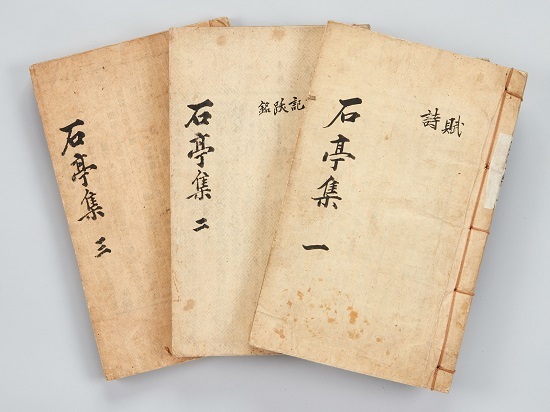 賦詩
石亭集 一
記跋銘
石亭集 二
石亭集 三